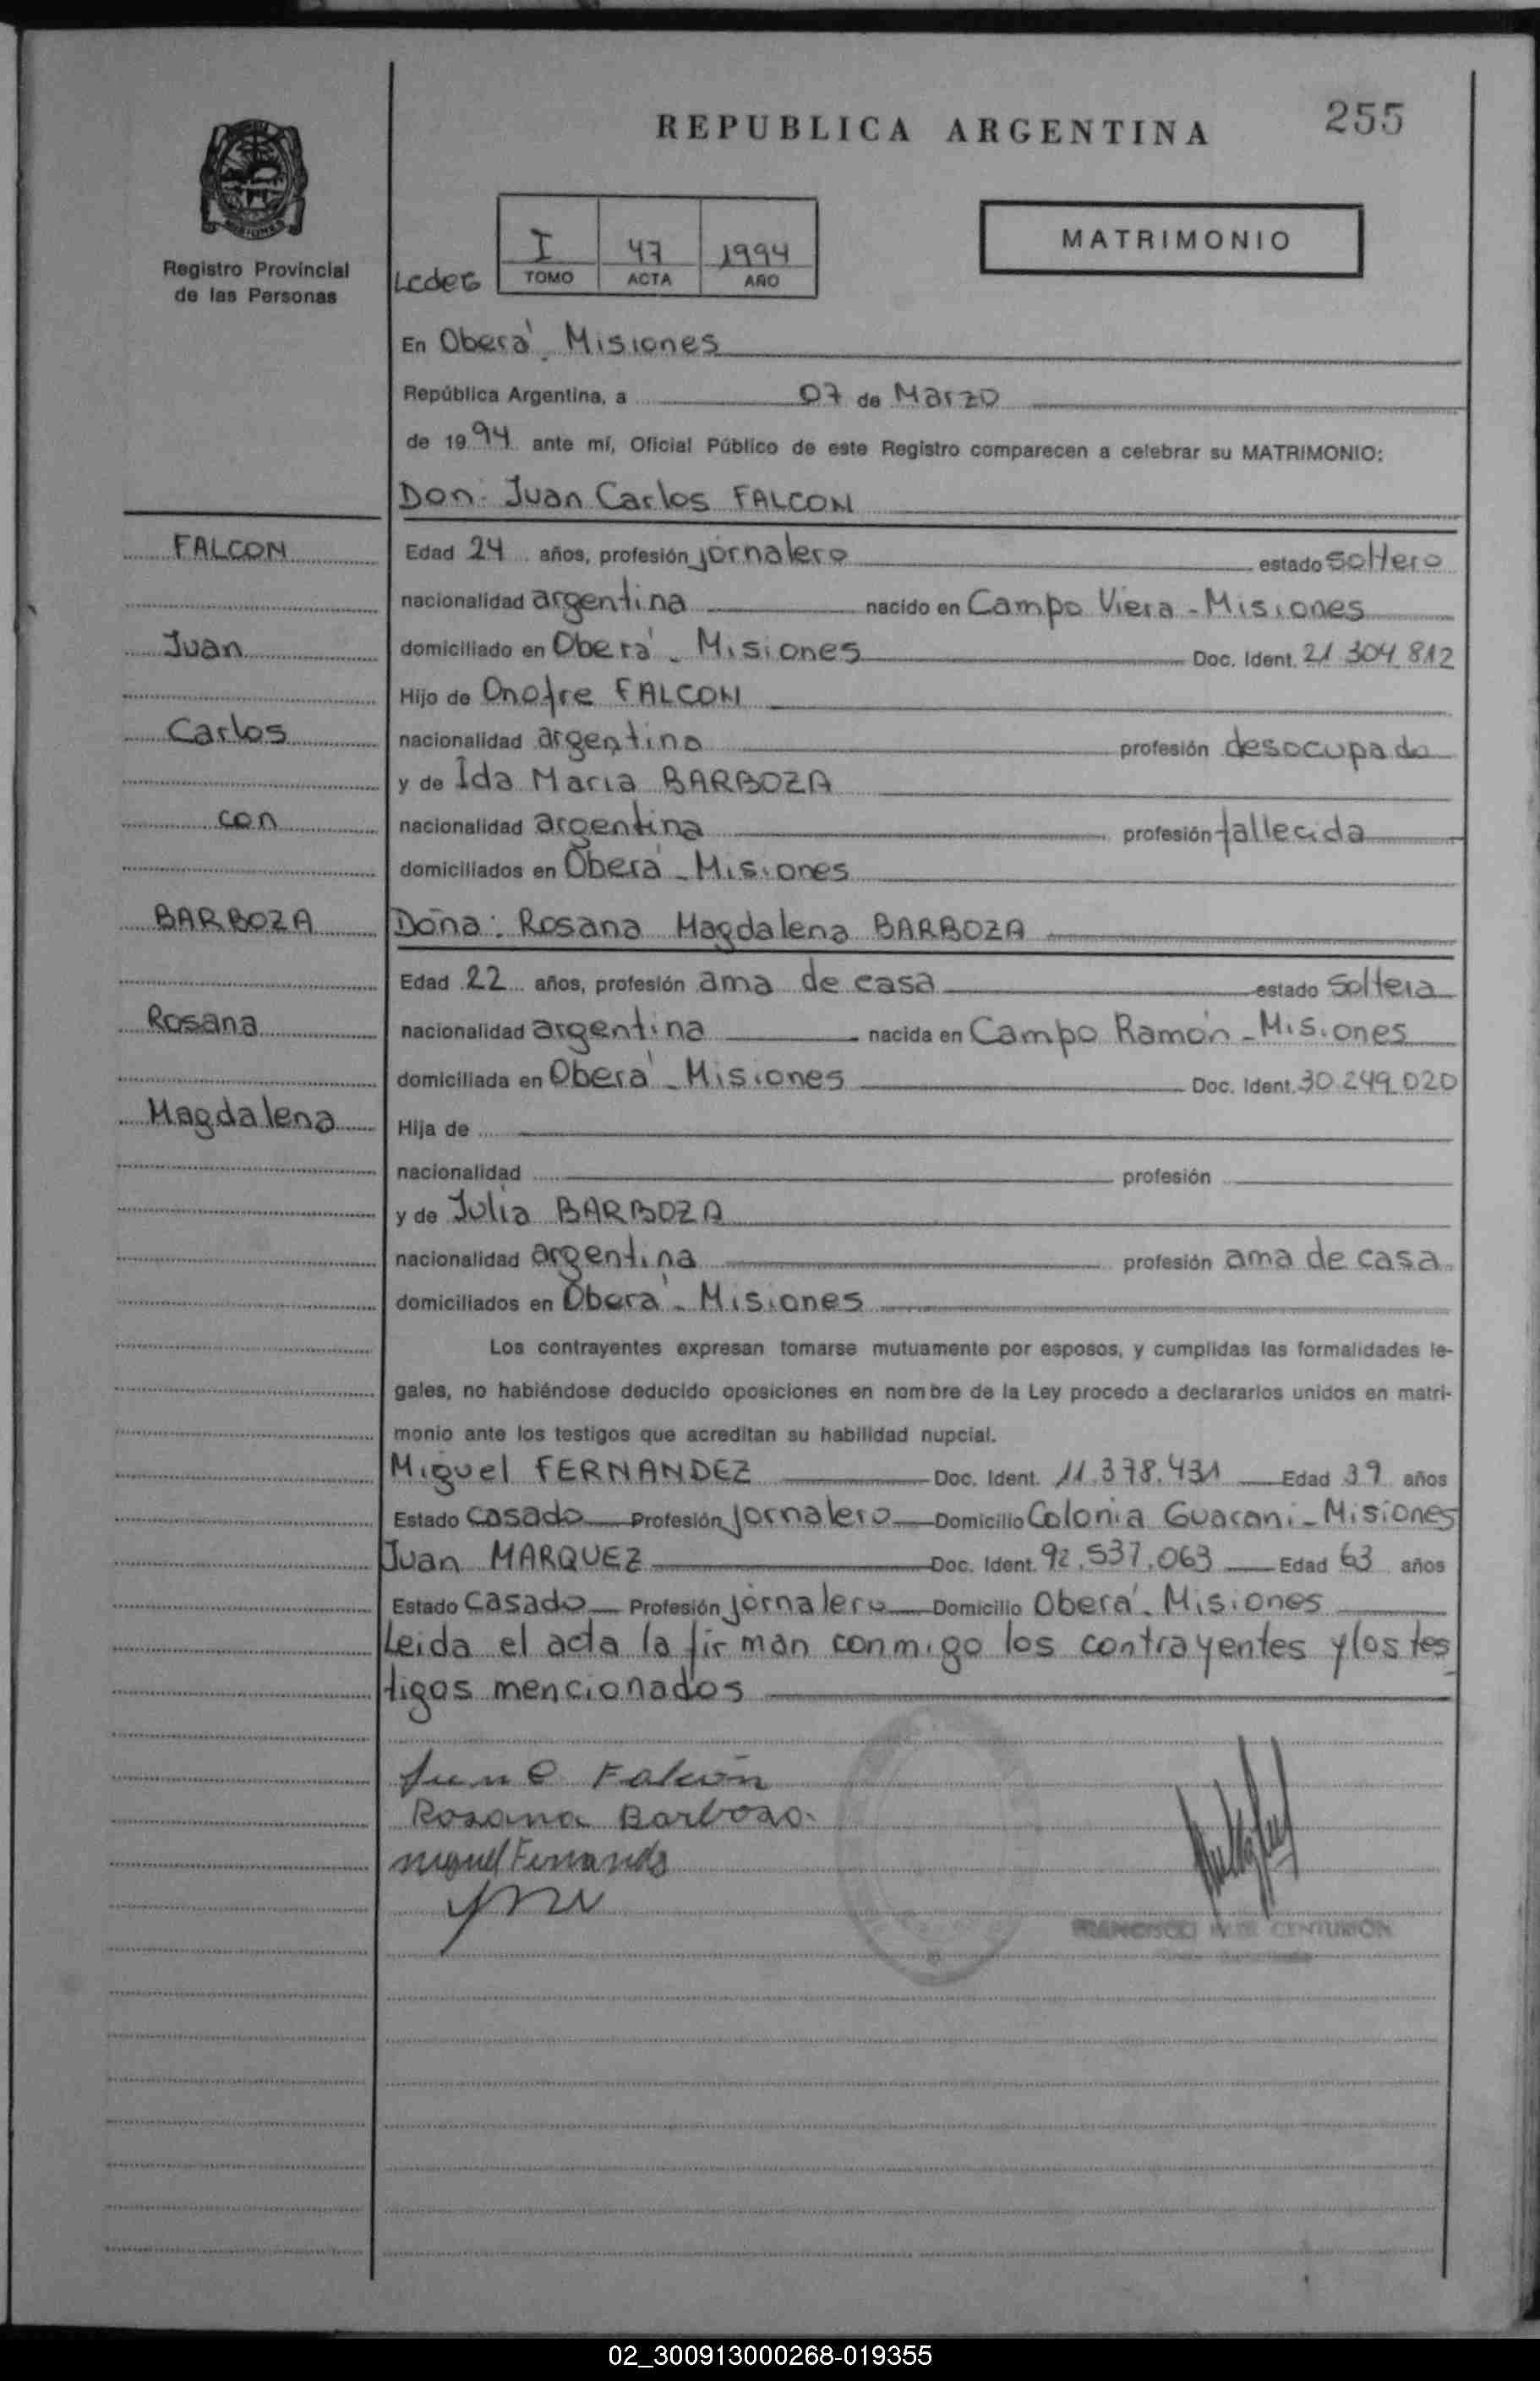 REPUBLICA ARGENTINA
255
MISIONES
Registro Provincial
de las Personas
I 47 1994
TOMO ACTA AÑO
MATRIMONIO
En Oberá - Misiones
República Argentina, a 07 de Marzo
de 1994 ante mí, Oficial Público de este Registro comparecen a celebrar su MATRIMONIO:
Don: Juan Carlos FALCON
FALCON
Juan
Carlos
con
BARBOZA
Rosana
Magdalena
Edad 24 años, profesión jornalero estado soltero
nacionalidad argentina nacido en Campo Viera - Misiones
domiciliado en Oberá - Misiones Doc. Ident. 21.304.812
Hijo de Onofre FALCON
nacionalidad argentina profesión desocupado
y de Ida Maria BARBOZA
nacionalidad argentina profesión fallecida
domiciliados en Oberá - Misiones
Doña: Rosana Magdalena BARBOZA
Edad 22 años, profesión ama de casa estado soltera
nacionalidad argentina nacida en Campo Ramón - Misiones
domiciliada en Oberá - Misiones Doc. Ident. 30.249.020
Hija de
nacionalidad profesión
y de Julia BARBOZA
nacionalidad argentina profesión ama de casa
domiciliados en Oberá - Misiones
Los contrayentes expresan tomarse mutuamente por esposos, y cumplidas las formalidades le-
gales, no habiéndose deducido oposiciones en nombre de la Ley procedo a declararlos unidos en matri-
monio ante los testigos que acreditan su habilidad nupcial.
Miguel FERNANDEZ Doc. Ident. 11.378.431 Edad 39 años
Estado casado Profesión jornalero Domicilio Colonia Guarani - Misiones
Juan MARQUEZ Doc. Ident. 92.537.063 Edad 63 años
Estado casado Profesión jornalero Domicilio Oberá - Misiones
Leida el acta la firman conmigo los contrayentes y los tes
tigos mencionados
Juan C Falcón
Rosana Barboza
Miguel Fernandez
FRANCISCO CENTURIÓN
02_300913000268-019355